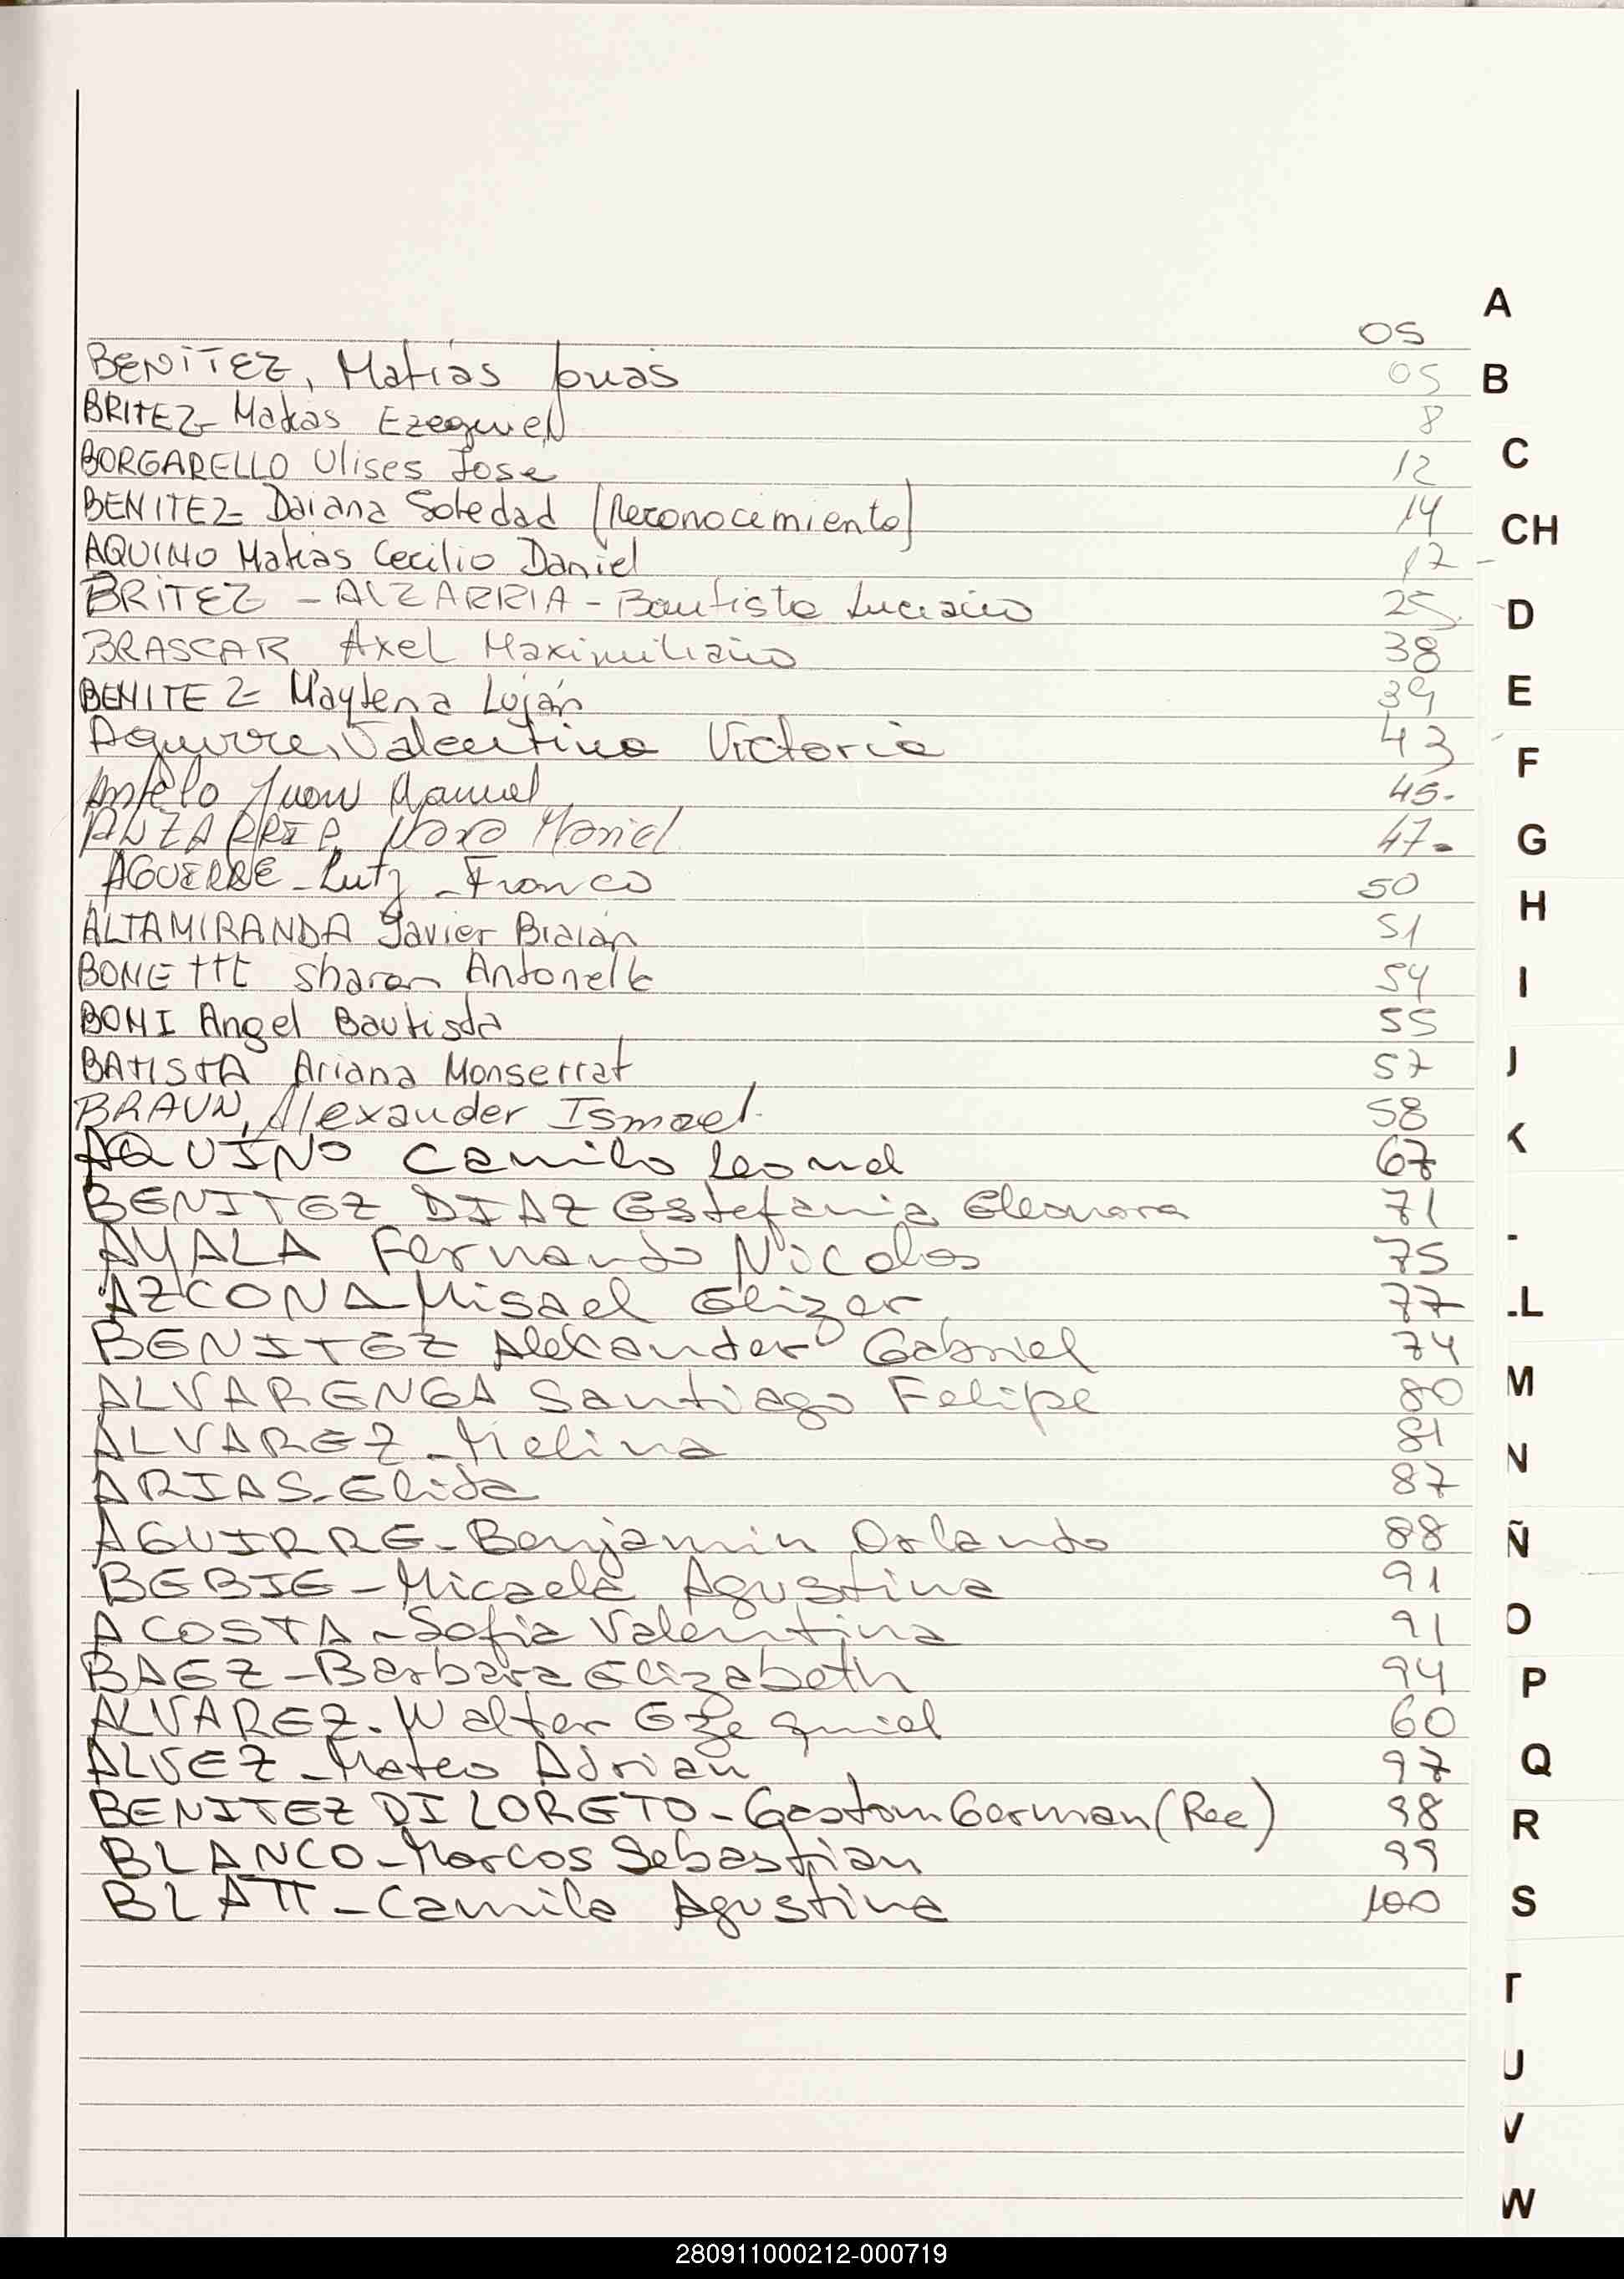 05
BENITEZ, Matias Jonas 05
BRITEZ- Matias Ezequiel 8
BORGARELLO Ulises Jose 12
BENITEZ- Daiana Soledad (Reconocimiento) 14
AQUINO Matias Cecilio Daniel 17
BRITEZ - ALZARRIA - Bautista Luciano 25
BRASCAR Axel Maximiliano 38
BENITEZ- Maytena Luján 39
Aguirre, Valentina Victoria 43
Antelo Juan Manuel 45.
47.
AGUERRE - Lutz - Franco 50
ALTAMIRANDA Javier Braian 51
BONETTI Sharon Antonella 54
BONI Angel Bautista 55
BATISTA Ariana Monserrat 57
BRAUN, Alexander Ismael. 58
AQUINO Camilo Leonel 67
BENITEZ DIAZ Estefania Eleonora 71
AYALA Fernando Nicolas 75
AZCONA Misael Elizer 77
BENITEZ Alexander Gabriel 74
ALVARENGA Santiago Felipe 80
ALVAREZ - Melina 81
ARIAS - Elida 87
AGUIRRE - Benjamin Orlando 88
BEBIE - Micaela Agustina 91
ACOSTA - Sofia Valentina 91
BAEZ - Barbara Elizabeth 94
ALVAREZ - Walter Ezequiel 60
ALVEZ - Mateo Adrian 97
BENITEZ DI LORETO - Gaston German (Rec) 98
BLANCO - Marcos Sebastian 99
BLATT - Camila Agustina 100
A
B
C
CH
D
E
F
G
H
I
J
K
L
M
N
Ñ
O
P
Q
R
S
T
U
V
W
280911000212-000719